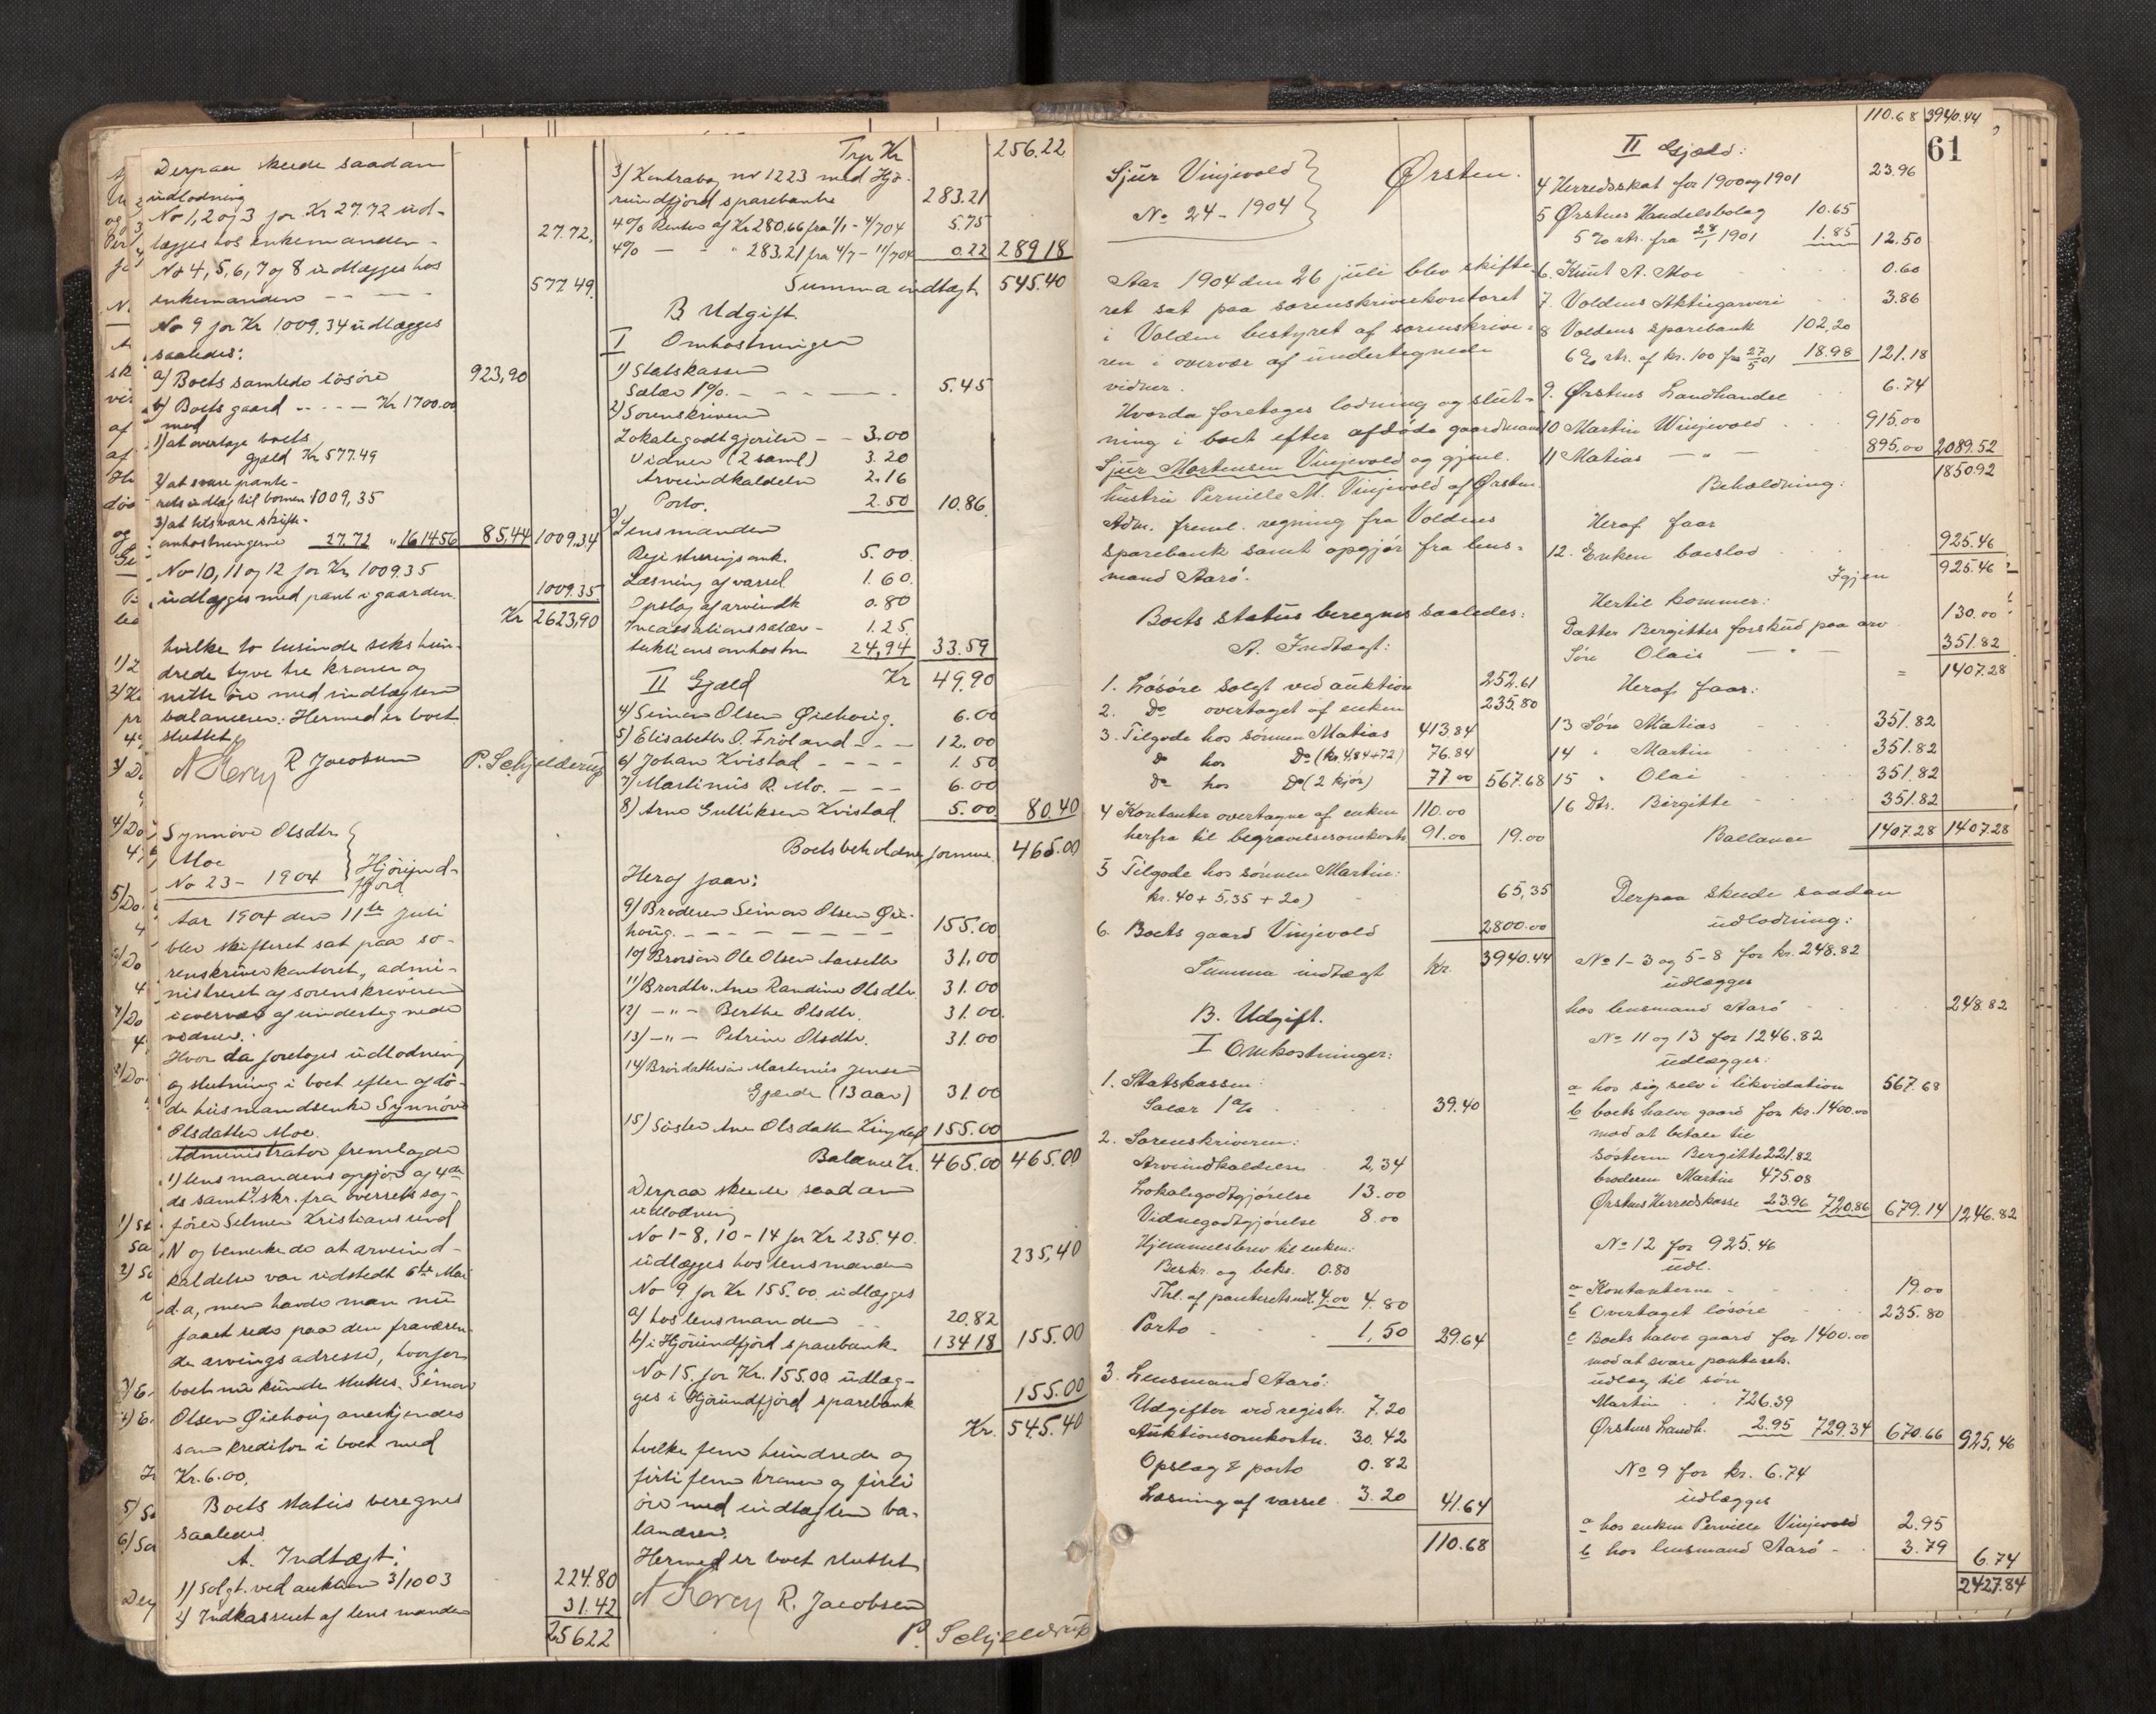 Derpaa skede saadan
udlodning
No 1, 2 og 3 for Kr 27.72 ud-
lægges hos enkemanden - 27.72,
No 4, 5, 6, 7 og 8 udlægges hos
enkemanden - - - - 577.49
No 9 for Kr 1009,34 udlægges
saaledes:
a) Boets samlede lösöre 923,90
b) Boets gaard - - - - Kr 1700.00
mod
1) at overtage boets
gjæld Kr 577.49
2) at svare pante-
rets udlæg til börnene 1009,35
3) at tilsvare skifte-
omkostningerne 27.72 " 1614 56 85,44 1009.34
No 10, 11 og 12 for Kr 1009.35
udlægges med pant i gaarden. 1009.35
Kr 2623,90
hvilke to tusinde seks hun-
drede tyve tre kroner og
nitti öre med indtægten
balancerer. Hermed er boet
sluttet
R Jacobsen P. Schjelderup
Synnöve Olsdtr
Moe
No 23 - 1904 Hjörund-
fjord
Aar 1904 den 11te Juli
blev skifteret sat paa so-
renskriverkontoret, admi-
nistreret af sorenskriveren
i overvær af undertegnede
vidner.
Hvor da foretoges udlodning
og slutning i boet efter afdö-
de husmandsenke Synnöve
Olsdatter Moe.
Administrator fremlagde
1) lensmandens opgjör og 4de
ds samt 2) skr. fra overretssag-
förer Selmer Kristiansund
N og bemerkede at arveind-
kaldelse var udstedt 6te Mai
d.a, men havde man nu
faaet rede paa den fraværen-
de arvings adresse, hvorfor
boet nu kunde sluttes. Simon
Olsen Öiehoug anerkjendes
som kreditor i boet med
Kr. 6.00.
Boets status beregnes
saaledes
A. Indtægt:
1) Solgt ved auktion 3/10 03 224.80
2) Indkasseret af lensmanden 31.42
256 22
Trp Kr 256.22
3) Kontrabog nr 1223 med Hjö-
rundfjord sparebanke 283.21
4% Renter af Kr 280,66 fra 1/1 - 4/7 04 5.75
4% - - " 283.21 fra 4/7 - 11/7 04 0.22 289 18
Summa indtægt 545.40
B Udgift.
I Omkostninger
1) Statskassen
Salær 1%. - - - - - 5.45
2) Sorenskriveren
Lokalegodtgjörelse - - 3.00
Vidner (2 saml) 3.20
Arveindkaldelse 2.16
Porto. 2.50 10.86.
3) Lensmanden
Registreringsomk. 5.00.
Læsning af varsel 1.60.
Opslag af arveindk 0.80
Incassationssalær - 1.25
Auktionsomkostn 24,94 33.59
II Gjæld Kr 49.90
4) Simon Olsen Öiehoug. 6.00
5) Elisabeth O. Fröland - - - 12.00
6) Johan Kvistad - - - - 1.50
7) Martinus R. Mo. - - - 6.00
8) Arne Gulliksen Kvistad 5.00 80.40
Boets beholdne formue. 465.00
Heraf faar:
9) Broderen Simon Olsen Öie-
houg. - - - - - - - 155.00
10) Brorsön Ole Olsen Aarseth 31,00
11) Brordtr. Ane Randine Olsdtr. 31.00
12) - " - Berthe Olsdtr. 31.00.
13) - " - Petrine Olsdtr. 31.00
14) Brordattersön Martinus Jensen
Gjerde (13 aar) 31.00
15) Söster Ane Olsdatter 155.00
Balance Kr. 465.00 465.00
Derpaa skede saadan
udlodning
No 1-8, 10-14 for Kr 235.40.
udlægges hos lensmanden 235,40
No 9 for Kr 155.00 udlægges
a) hos lensmanden - - 20,82
b) i Hjörundfjord sparebank 134 18 155.00
No 15 for Kr. 155.00 udlæg-
ges i Hjörundfjord sparebank 155.00
Kr. 545.40
hvilke fem hundrede og
firti fem kroner og firti
öre med indtægten ba-
lancerer.
Hermed er boet sluttet
R. Jacobsen
P. Schjelderup
Sjur Vinjevold
No 24 - 1904
Ørsten.
Aar 1904 den 26 juli blev skifte-
ret sat paa sorenskriverkontoret
i Volden bestyret af sorenskrive-
ren i overvær af undertegnede
vidner.
Hvorda foretoges lodning og slut-
ning i boet efter afdöde gaardmand
Sjur Mortensen Vinjevold og gjenl.
hustru Pernille M. Vinjevold af Ørsten
Adm. freml. regning fra Voldens
sparebank samt opgjör fra lens-
mand Aarö.
Boets status beregnes saaledes:
A. Indtægt:
1. Lösöre solgt ved auktion 252.61
2. Do overtaget af enken 235.80
3. Tilgode hos sönnen Matias 413.84
do hos Do (kr. 4.84 + 72) 76.84
do hos Do (2 kjör) 77.00 567.68
4 Kontanter overtagne af enken 110.00
herfra til begravelsesomkostn 91.00 19.00
5 Tilgode hos sönnen Martin:
kr. 40 + 5,35 + 20) - 65,35
6. Boets gaard Vinjevold 2800.00
Summa indtægt kr. 3940.44
B. Udgift.
I Omkostninger:
1. Statskassen:
Salær 1% 39.40
2. Sorenskriveren:
Arveindkaldelsen 2,34
Lokalegodtgjörelse 13.00
Vidnegodtgjörelse 8.00
Hjemmelsbrev til enken:
Beskr. og bekr. 0.80
Thl. af panteretsudl. 4.00 4.80
Porto 1,50 29.64
3. Lensmand Aarö:
Udgifter ved registr. 7.20
Auktionsomkostn. 30.42
Opslag & porto 0.82
Læsning af varsel 3.20 41.64
110.68
110.68 3940.44
61
II Gjæld:
4 Herredsskat for 1900 og 1901 23.96
5 Ørstens Handelsbolag 10.65
5% rtr. fra 28/1 1901 1.85 12.50
6. Knut A. Moe 0.60
7. Voldens Aktiegarveri 3.86
8 Voldens sparebank 102,20
6% rtr. af kr. 100 fra 27/5 01 18.98 121.18
9. Ørstens Landhandel 6.74
10 Martin Vinjevold 915.00
11 Matias - " - 895,00 2089.52
Beholdning: 1850 92
Heraf faar
12. Enken boeslod 925.46
Igjen 925.46
Hertil kommer:
Datter Bergittes forskud paa arv 130.00
Sön Olais - " - 351.82
= 1407.28
Heraf faar:
13 Sön Matias 351.82
14 " Martin 351.82
15 " Olai 351.82
16 Dtr. Birgitte 351.82
Ballance 1407.28 1407.28
Derpaa skede saadan
udlodning:
No 1-3 og 5-8 for kr. 248.82
udlægges
hos lensmand Aarö 248.82
No 11 og 13 for 1246.82
udlægges:
a hos sig selv i likvidation 567.68
b boets halve gaard for kr. 1400.00
mod at betale til
sösteren Bergitte 221.82
broderen Martin 475.08
Ørstens Herredskasse 23.96 720.86 679.14 1246.82
No 12 for 925.46
udl.
a Kontanterne - 19.00
b Overtaget lösöre 235.80
c Boets halve gaard for 1400.00
mod at svare panterets.
udlæg til sön
Martin 726.39
Ørstens Landh. 2.95 729.34 670.66 925,46
No 9 for kr. 6.74
udlægges
a hos enken Pernille Vinjevold 2.95
b hos lensmand Aarö - 3.79 6.74
2427.84